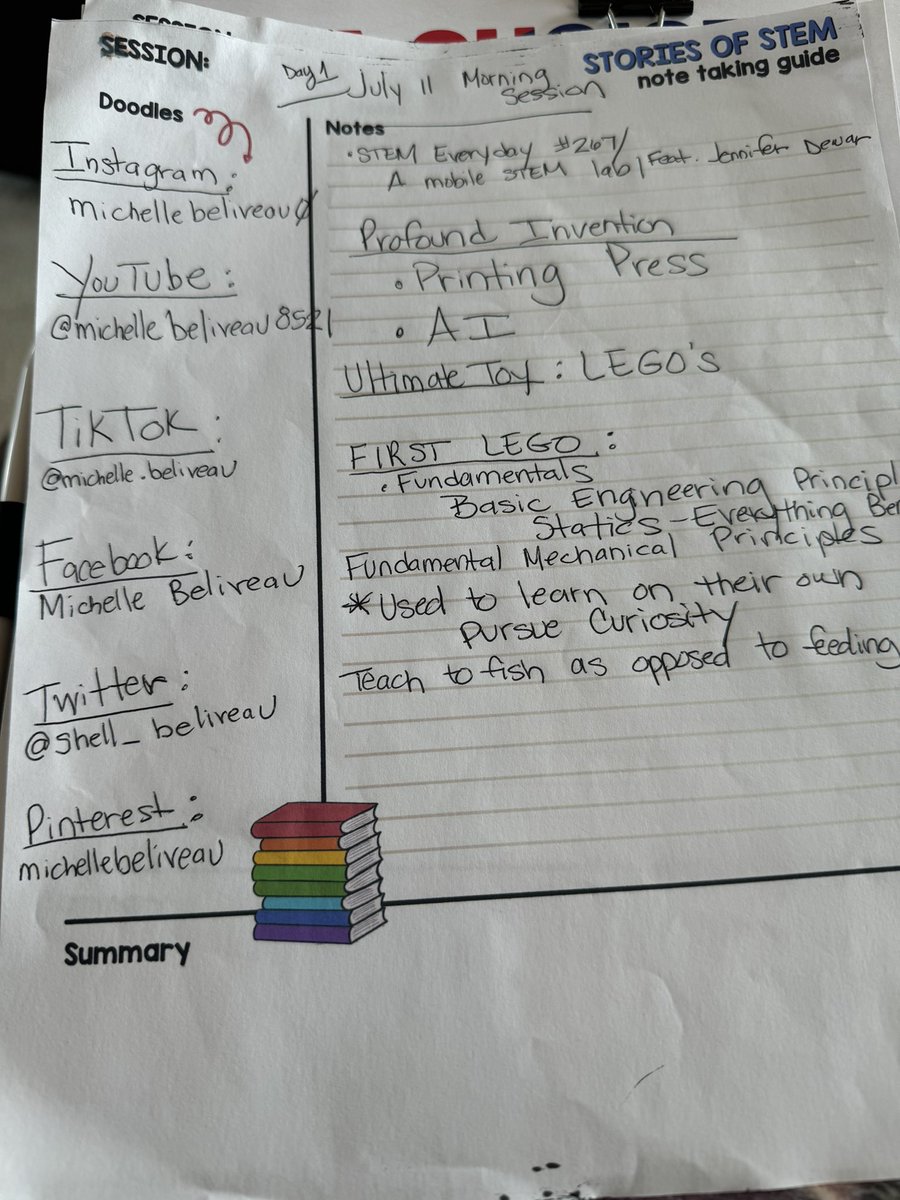 SESSION:
Day 1 July 11 Morning
Session
STORIES OF STEM
note taking guide
Doodles
Instagram:
michellebeliveau0
YouTube:
@michellebeliveau8521
TikTok:
@michelle.beliveau
Facebook:
Michelle Beliveau
Twitter:
@shell_beliveau
Pinterest:
michellebeliveau
Notes
• STEM Everyday #267/
A mobile STEM lab/Feat. Jennifer Dewar
Profound Invention
• Printing Press
• AI
Ultimate Toy: LEGO's
FIRST LEGO:
• Fundamentals
Basic Engneering Principl
Statics - Everything Ben
Fundamental Mechanical Principles
* Used to learn on their own
Pursue Curiosity
Teach to fish as opposed to feeding
Summary